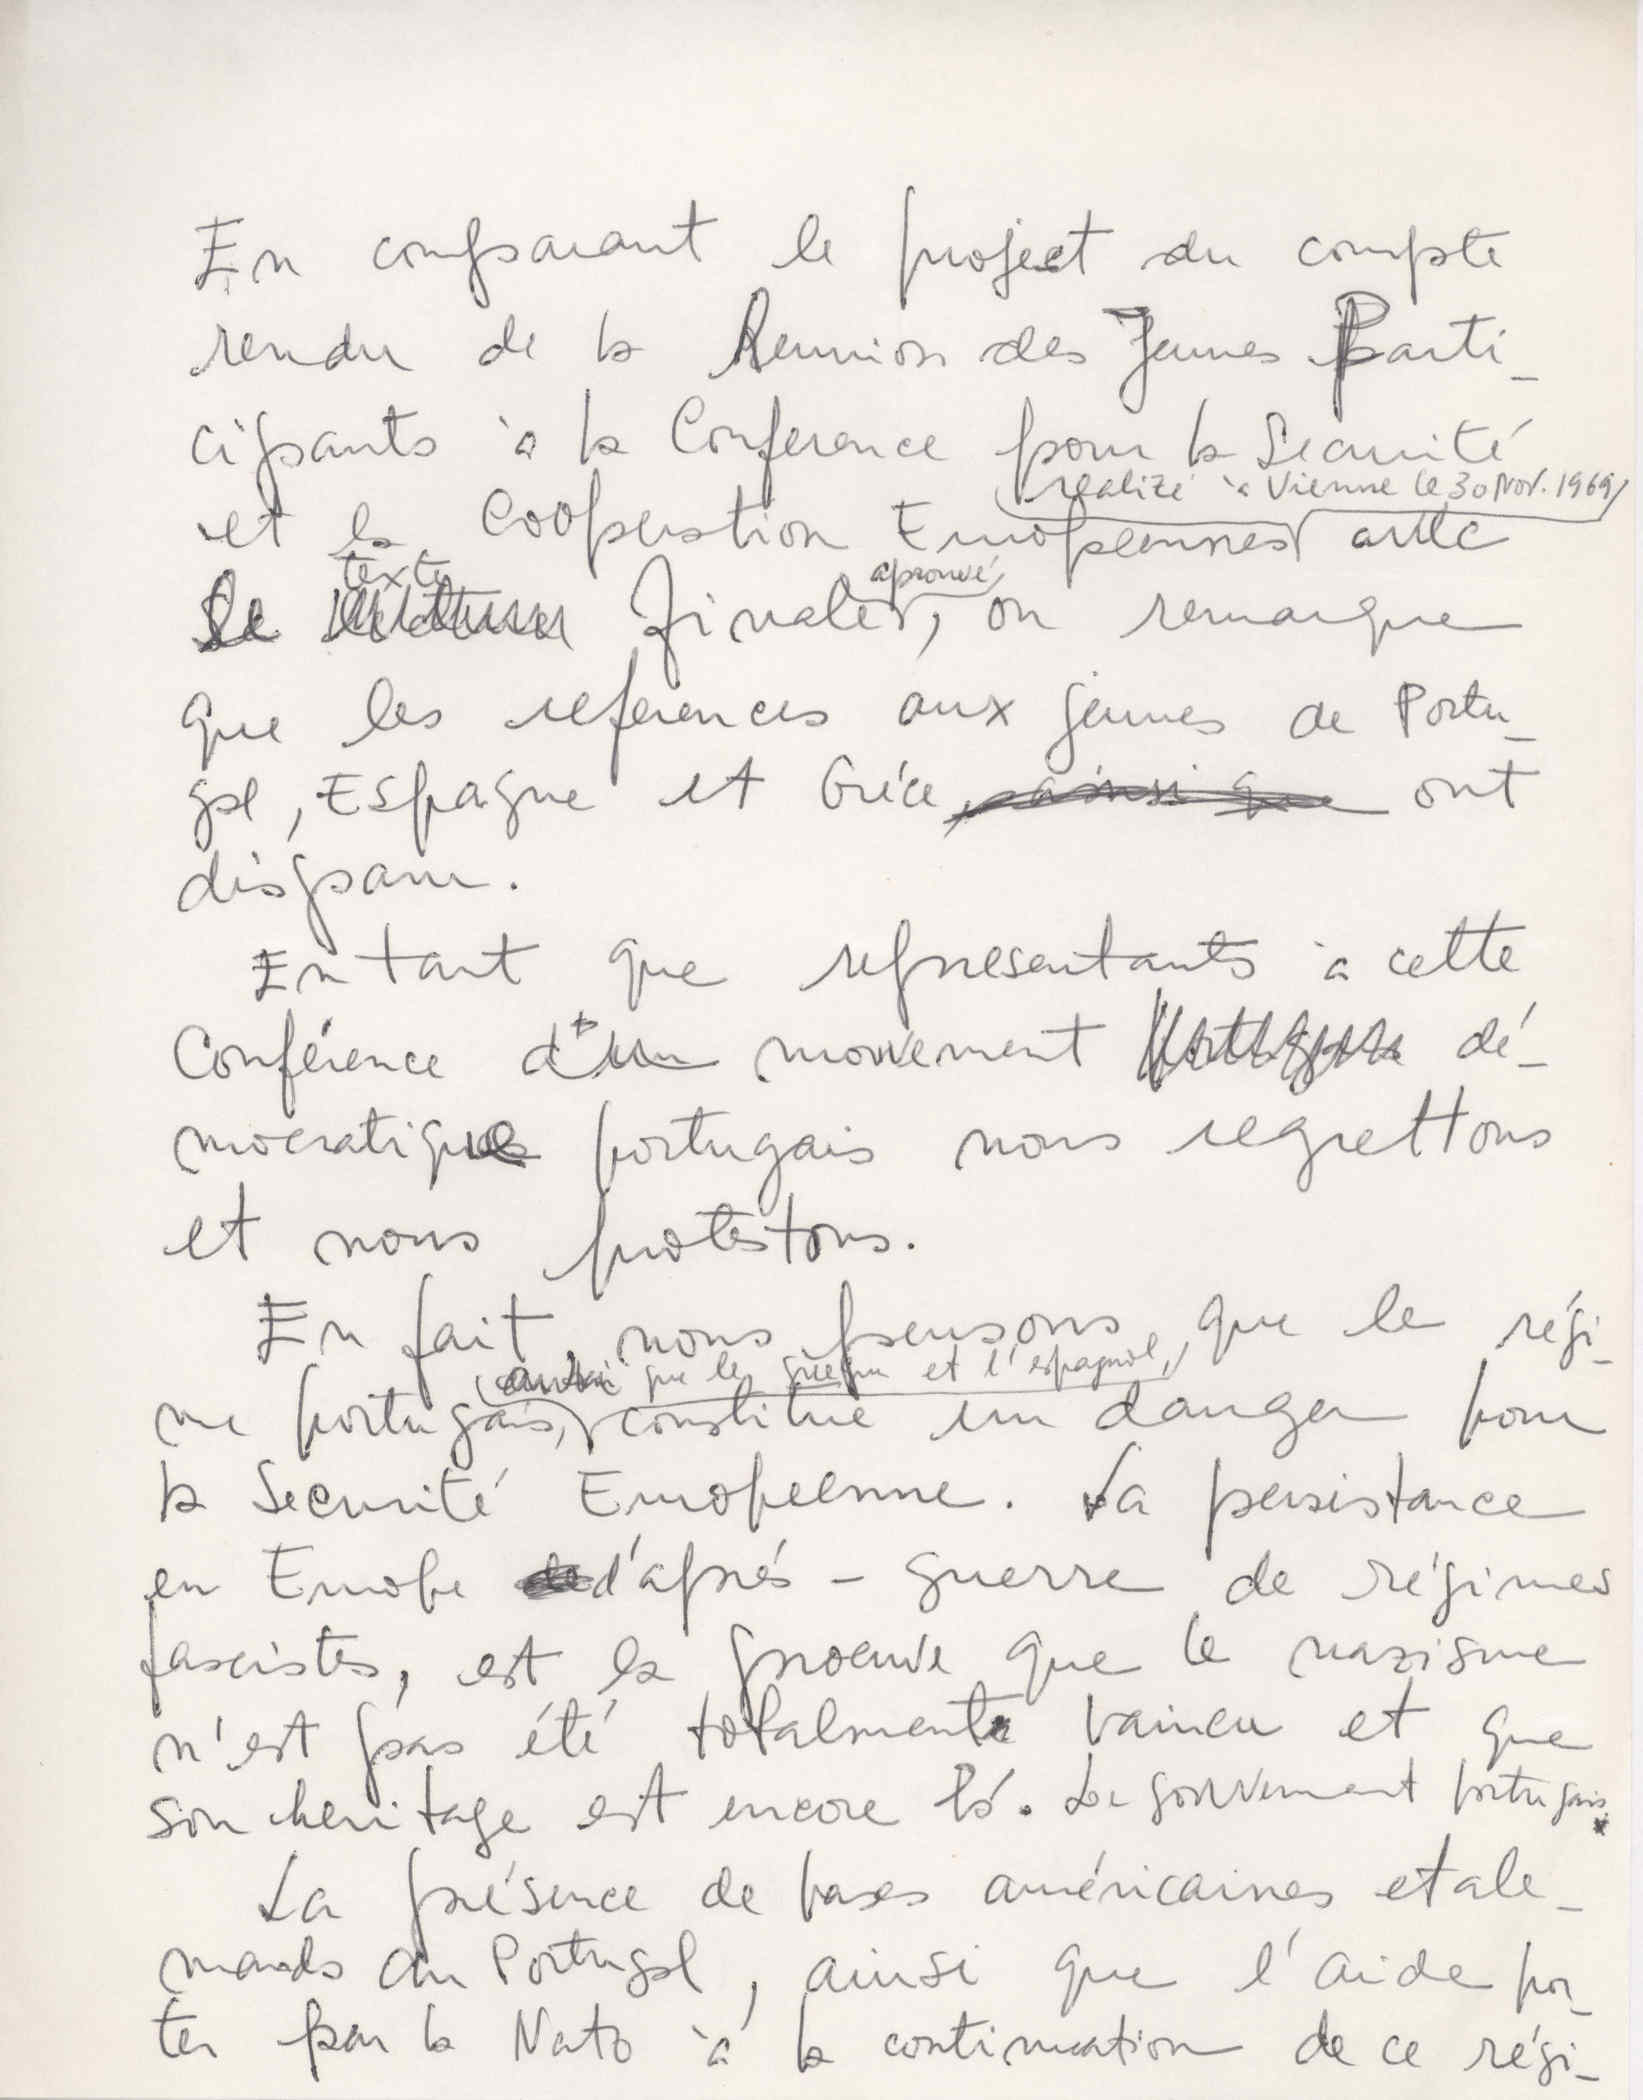 En comparant le project du compte
rendu de la Reunion des Jeunes Parti-
cipants à la Conference pour la Securité
realizé à Vienne le 30 Nov. 1969
et la Cooperation Européennes avec
texte aprouvé
le finale, on remarque
que les references aux jeunes de Portu-
gal, Espagne et Gréce, ainsi que ont
disparu.
En tant que representants à cette
Conférence d'un mouvement dé-
mocratique portugais nous regrettons
et nous protestons.
En fait, nous pensons, que le régi-
ainsi que le grequ et l'espagnol,
me portugais, constitue un danger pour
la Securité Européenne. La persistance
en Europe d'aprés-guerre de régimes
fascistes, est la proeuve que le nazisme
n'est pas été totalmente vaincu et que
son heritage est encore lá. Le gouvernement portugais
La présence de bases américaines et ale-
mands au Portugal, ainsi que l'aide por-
ter par la Nato à la continuation de ce régi-